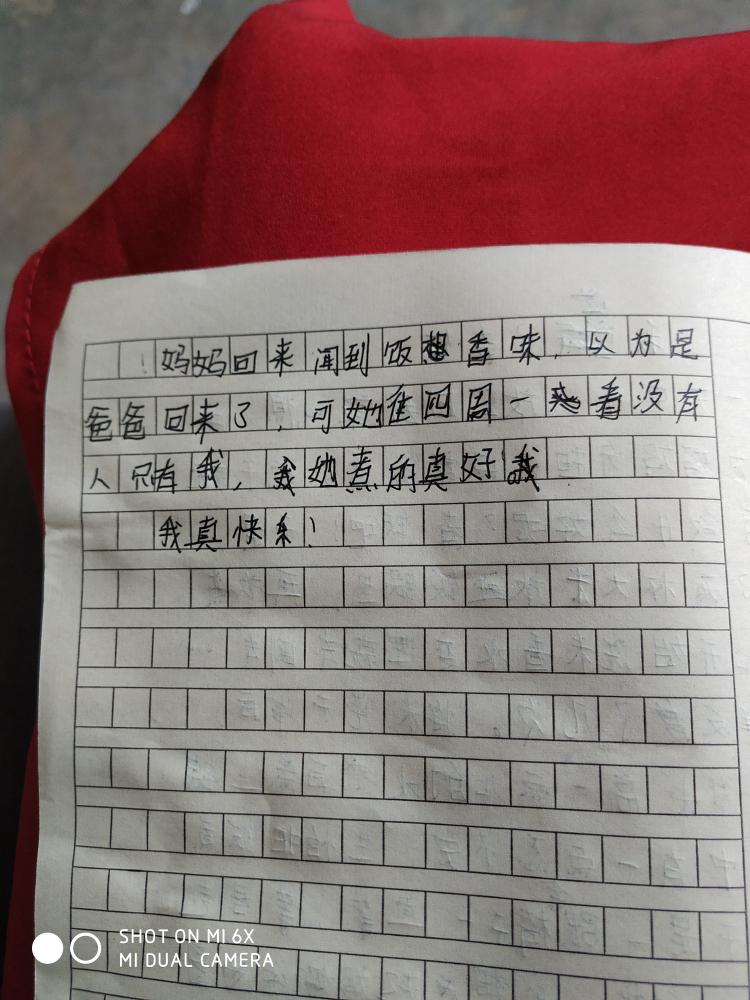 妈妈回来闻到饭香味，以为是
爸爸回来了，可她往四周一看没有
人只有我，我她煮的真好
我真快乐！
SHOT ON MI 6X
MI DUAL CAMERA